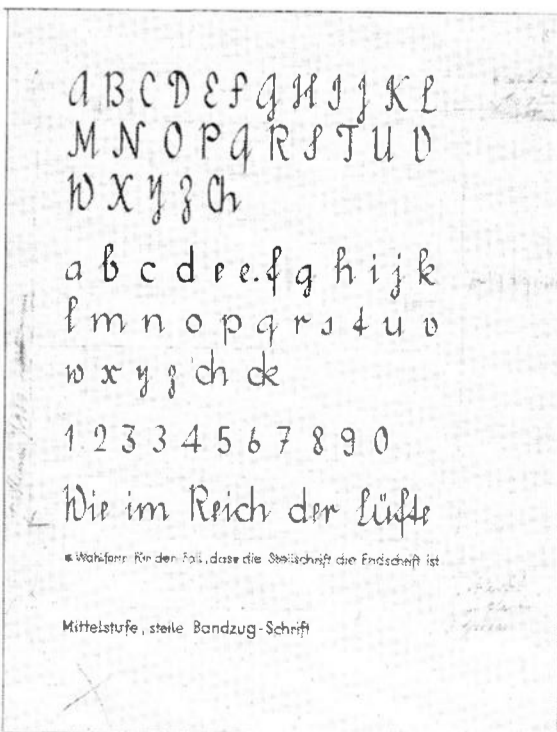 A B C D E F G H I J K L
M N O P Q R S T U V
W X Y Z Ch
a b c d e e. f g h i j k
l m n o p q r s t u v
w x y z ch ck
1 2 3 3 4 5 6 7 8 9 0
Wie im Reich der Lüfte
* Wahlform für den Fall, dass die Steilschrift die Endschrift ist
Mittelstufe, steile Bandzug-Schrift